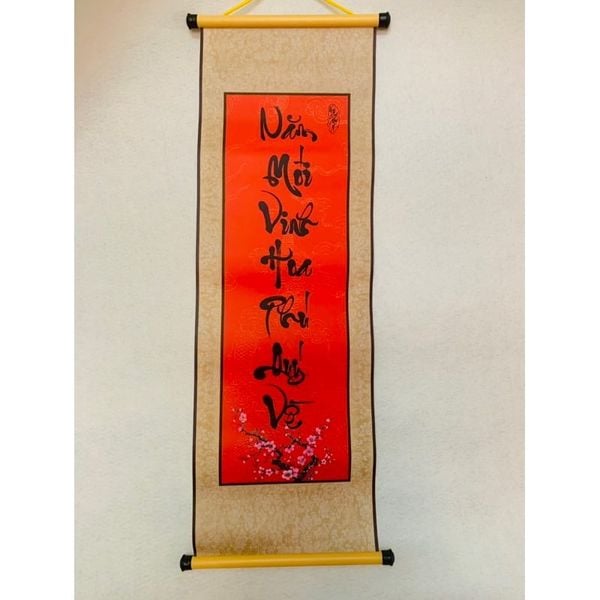 Năm
Mới
Vinh
Hoa
Phú
Quý
Về